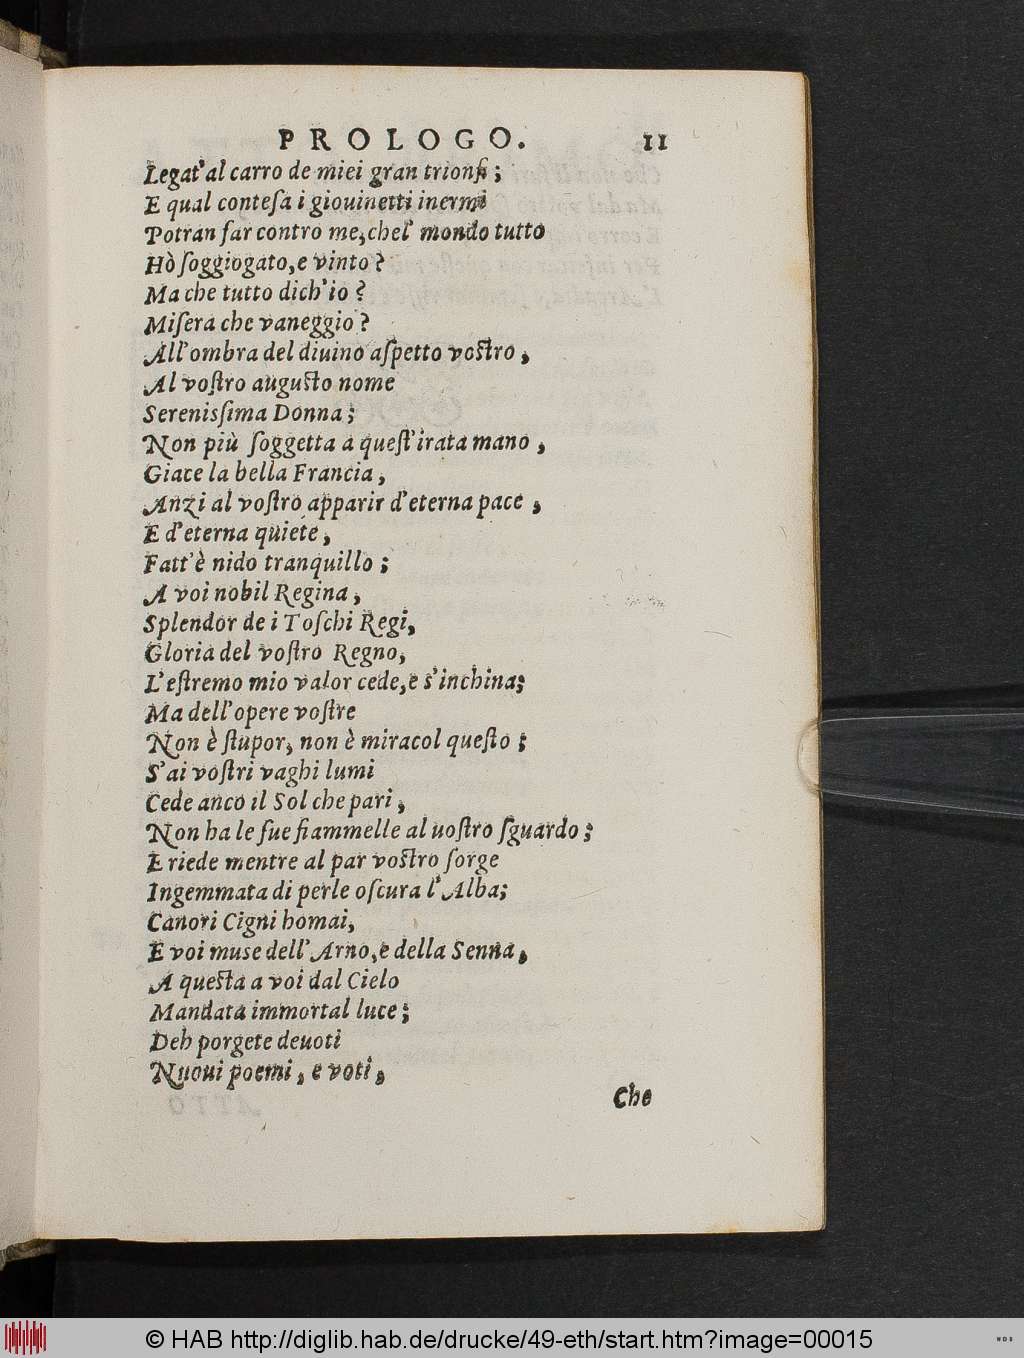 PROLOGO. 11
Legat'al carro de miei gran trionfi;
E qual contesa i giouinetti inermi
Potran far contro me, chel' mondo tutto
Hò soggiogato, e vinto?
Ma che tutto dich'io?
Misera che vaneggio?
All'ombra del diuino aspetto vostro,
Al vostro augusto nome
Serenissima Donna;
Non più soggetta a quest'irata mano,
Giace la bella Francia,
Anzi al vostro apparir d'eterna pace,
E d'eterna quiete,
Fatt'è nido tranquillo;
A voi nobil Regina,
Splendor de i Toschi Regi,
Gloria del vostro Regno,
L'estremo mio valor cede, e s'inchina;
Ma dell'opere vostre
Non è stupor, non è miracol questo;
S'ai vostri vaghi lumi
Cede anco il Sol che pari,
Non ha le sue fiammelle al uostro sguardo;
E riede mentre al par vostro sorge
Ingemmata di perle oscura l'Alba;
Canori Cigni homai,
E voi muse dell'Arno, e della Senna,
A questa a voi dal Cielo
Mandata immortal luce;
Deh porgete deuoti
Nuoui poemi, e voti,
Che
© HAB http://diglib.hab.de/drucke/49-eth/start.htm?image=00015